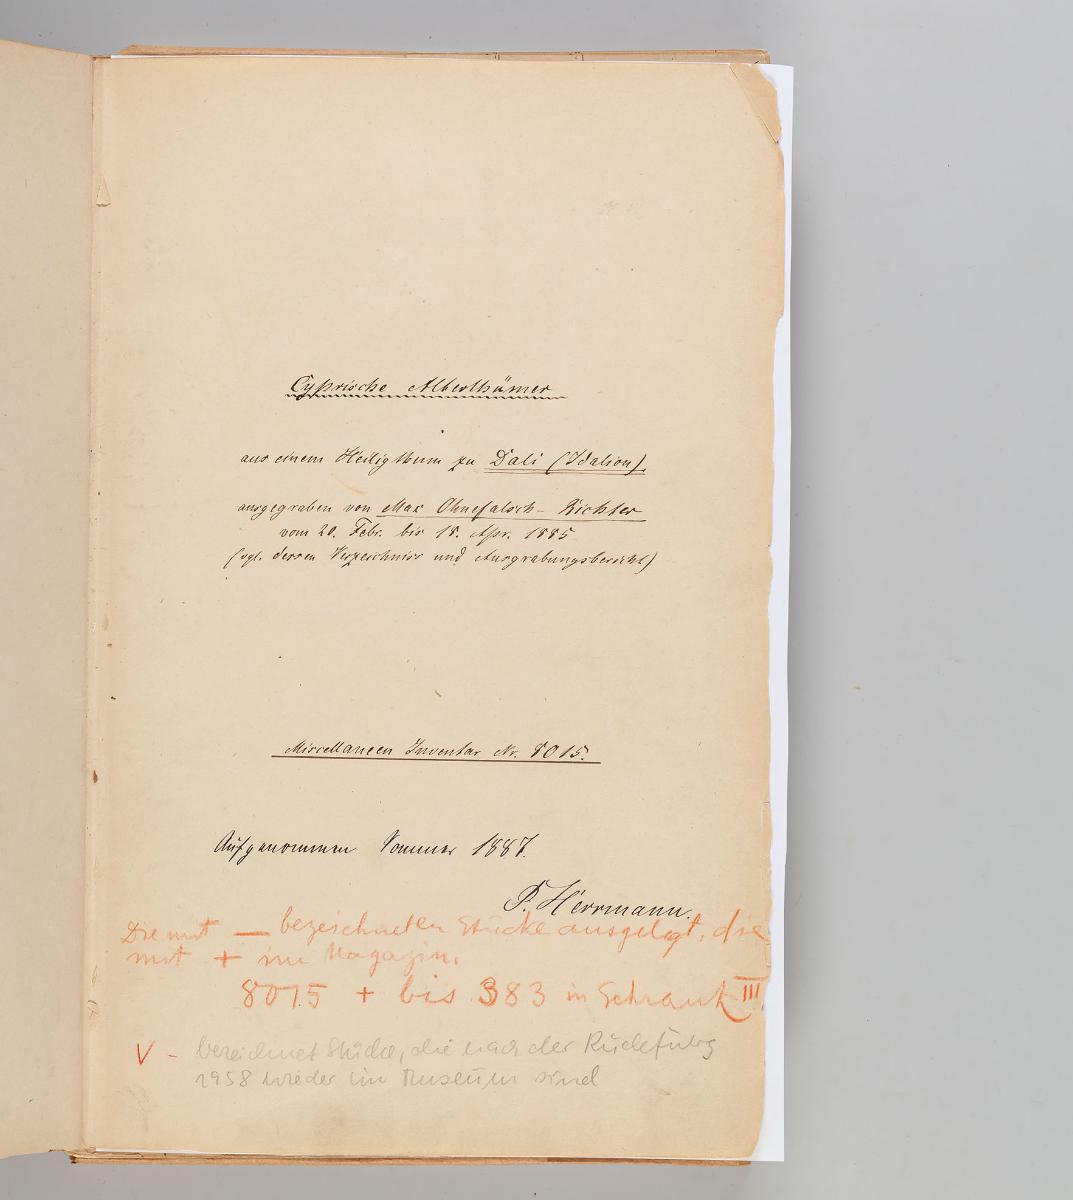 Cyprische Alterthümer
aus einem Heiligthum zu Dali (Idalion),
ausgegraben von Max Ohnefalsch-Richter
vom 20. Febr. bis 18. Apr. 1885
(vgl. dessen Verzeichniss und Ausgrabungsbericht)
Miscellaneen Inventar Nr. 8015.
Aufgenommen Sommer 1887.
P. Herrmann.
Die mit — bezeichneten Stücke ausgelegt, die
mit + im Magazin.
8015 + bis 383 in Schrank III.
V - bezeichnet Stücke, die nach der Rückführg
1958 wieder im Museum sind